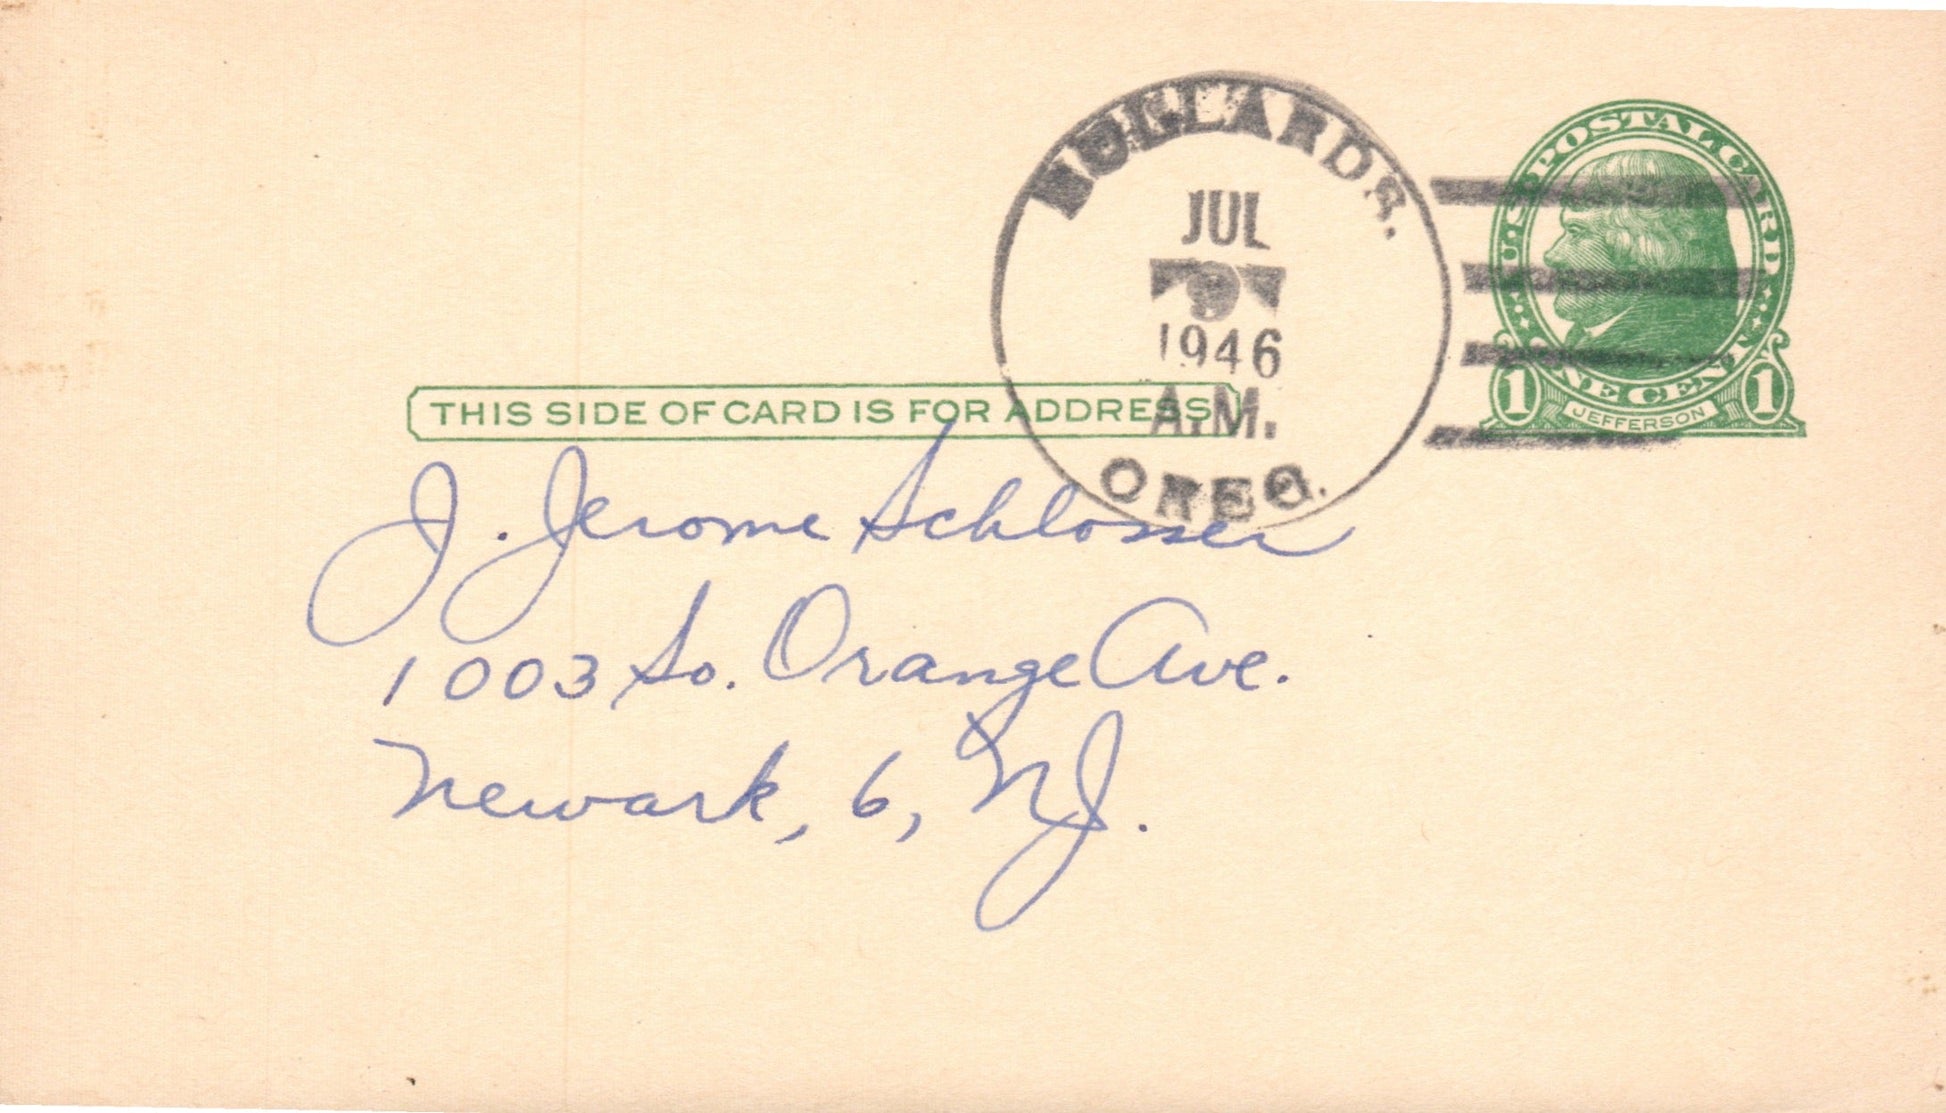 BULLARDS.
JUL
9
1946
A.M.
OREG.
U·S·POSTAL CARD
ONE CENT
1 JEFFERSON 1
THIS SIDE OF CARD IS FOR ADDRESS
J. Jerome Schlosser
1003 So. Orange Ave.
Newark, 6, N.J.